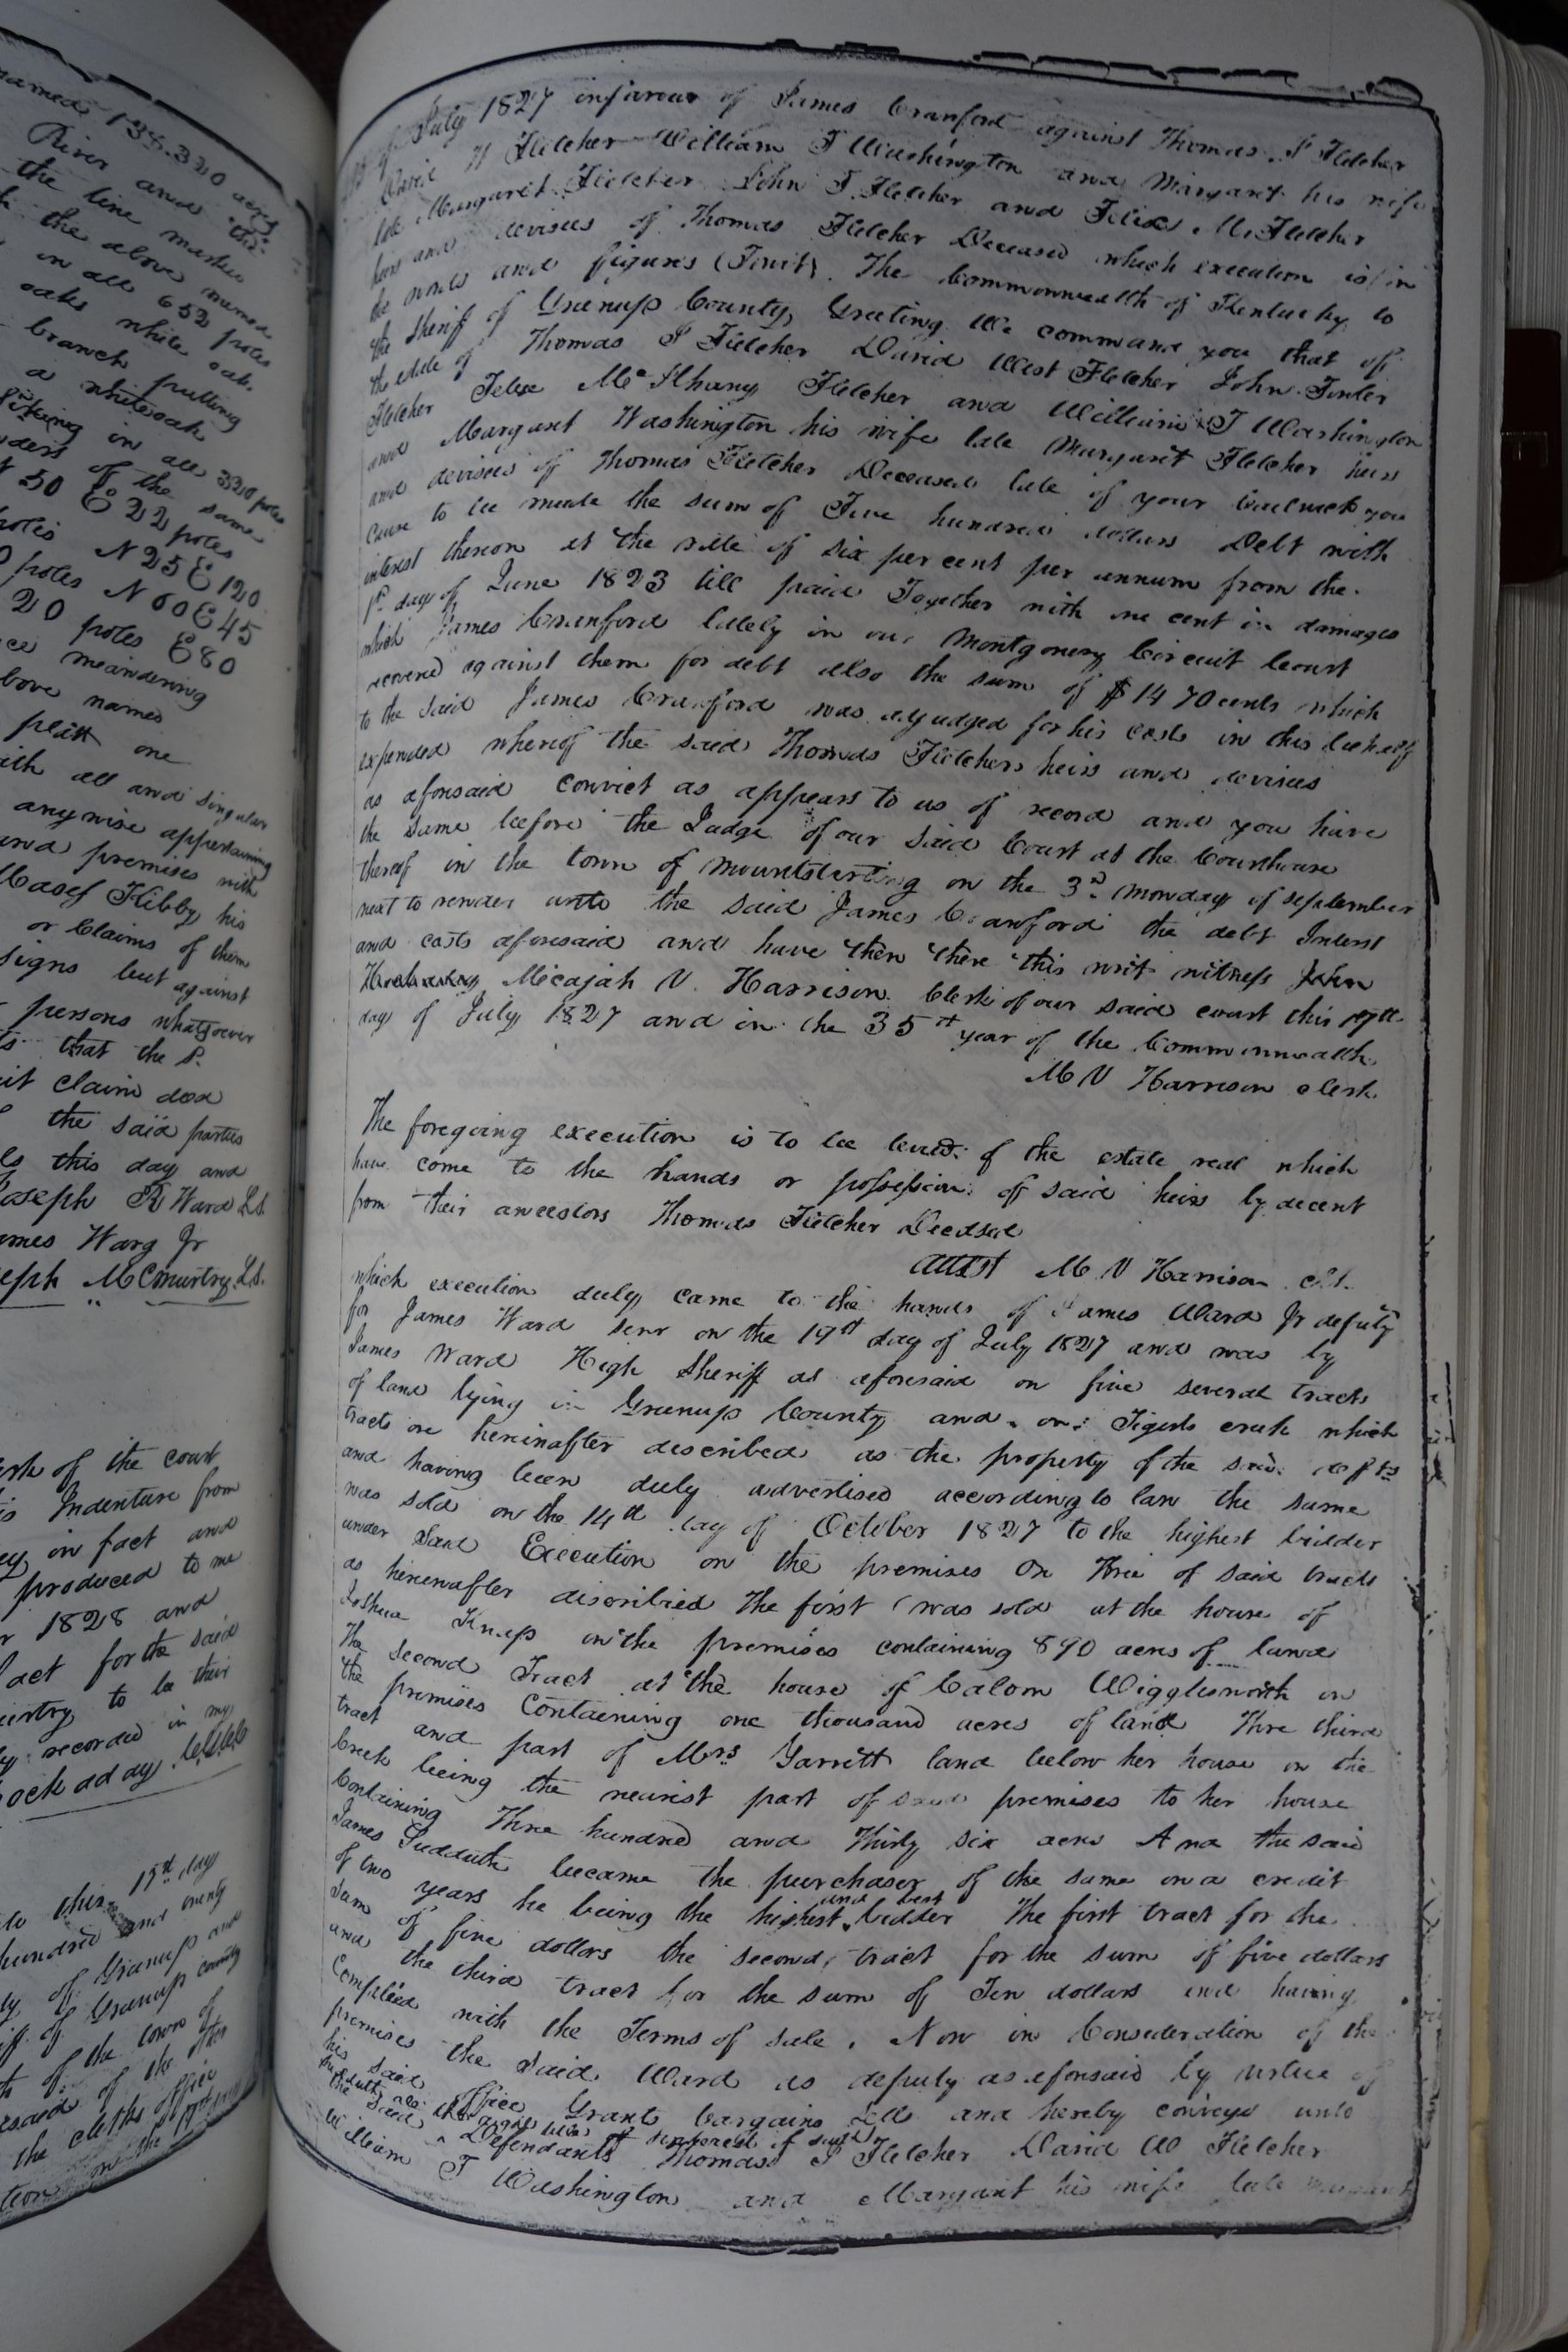 named 138.320 acres
River and the
the line marked
the above named
in all 652 poles
oaks white oak
branch putting
a whiteoak
in all 320 poles
of the same
N 50 E 22 poles
poles N 25 E 120
poles N 60 E 45
20 poles E 80
meandering
above named
one
with all and singular
anywise appertaining
and premises with
Kibby his
or Claims of them
signs but against
persons whatsoever
that the s.
quit claim deed
the said parties
this day and
Joseph R Ward L.S.
James Ward Jr
Joseph McMurtry L.S.
of the court
Indenture from
in fact and
produced to me
1828 and
act for the said
to be their
recorded in my
this 15th day
hundred and twenty
of Greenup and
of Greenup county
of the town of
of the other
the clerks office
on the 17th
July 1827 in favour of James Cranford against Thomas P Fletcher
David W Fletcher William T Washington and Margaret his wife
late Margaret Fletcher John T Fletcher and Felix M. Fletcher
heirs and devisees of Thomas Fletcher Deceased which execution is in
the words and figures (Towit). The Commonwealth of Kentucky to
the Sheriff of Greenup County, Greeting We command you that of
the estate of Thomas P Fletcher David West Fletcher John Fowler
Fletcher Felix McIlhany Fletcher and William T Washington
and Margaret Washington his wife late Margaret Fletcher heirs
and devisees of Thomas Fletcher Deceased late of your bailiwick you
Cause to be made the sum of Five hundred dollars Debt with
interest thereon at the rate of six per cent per annum from the
1st day of June 1823 till paid Together with one cent in damages
which James Cranford lately in our Montgomery Circuit Court
recovered against them for debt also the sum of $14 70 cents which
to the said James Cranford was adjudged for his costs in this behalf
expended whereof the said Thomas Fletchers heirs and devisees
as aforesaid convict as appears to us of record and you have
the same before the Judge of our said Court at the Courthouse
thereof in the town of Mountsterling on the 3d monday of september
next to render unto the said James Cranford the debt Interest
and costs aforesaid and have then there this writ witness John
Micajah V. Harrison Clerk of our said court this 17th
day of July 1827 and in the 35th year of the Commonwealth
M V Harrison clerk
The foregoing execution is to be levied of the estate real which
have come to the hands or possession of said heirs by decent
from their ancestors Thomas Fletcher Decdsed
Attest M V Harrison Clk.
which execution duly came to the hands of James Ward Jr deputy
for James Ward senr on the 19th day of July 1827 and was by
James Ward High Sheriff as aforesaid on five several tracts
of land lying in Greenup County and on Tigerts creek which
tracts are hereinafter described as the property of the said defts
and having been duly advertised according to law the same
was sold on the 14th day of October 1827 to the highest bidder
under said Execution on the premises On Three of said tracts
as hereinafter discribed The first was sold at the house of
Joshua Knap on the premises containing 890 acres of land
The second Tract at the house of Calom Wigglesworth on
the premises Containing one thousand acres of land Thre third
tract and part of Mrs Garrett land below her house on the
Creek being the nearist part of said premises to her house
Containing Three hundred and Thirty six acres And the said
James Sudduth became the purchaser of the same on a credit
of two years he being the highest and best bidder The first tract for the
sum of five dollars the second tract for the sum of five dollars
and the third tract for the sum of Ten dollars and having
Complied with the Terms of sale. Now in Consideration of the
premises the said Ward as deputy as aforesaid by virtue of
his said office Grants bargains Sells and hereby conveys unto
Sudduth all the right title interest of said
the said Defendants Thomas P Fletcher David W Fletcher
William T Washington and Margaret his wife late Margaret